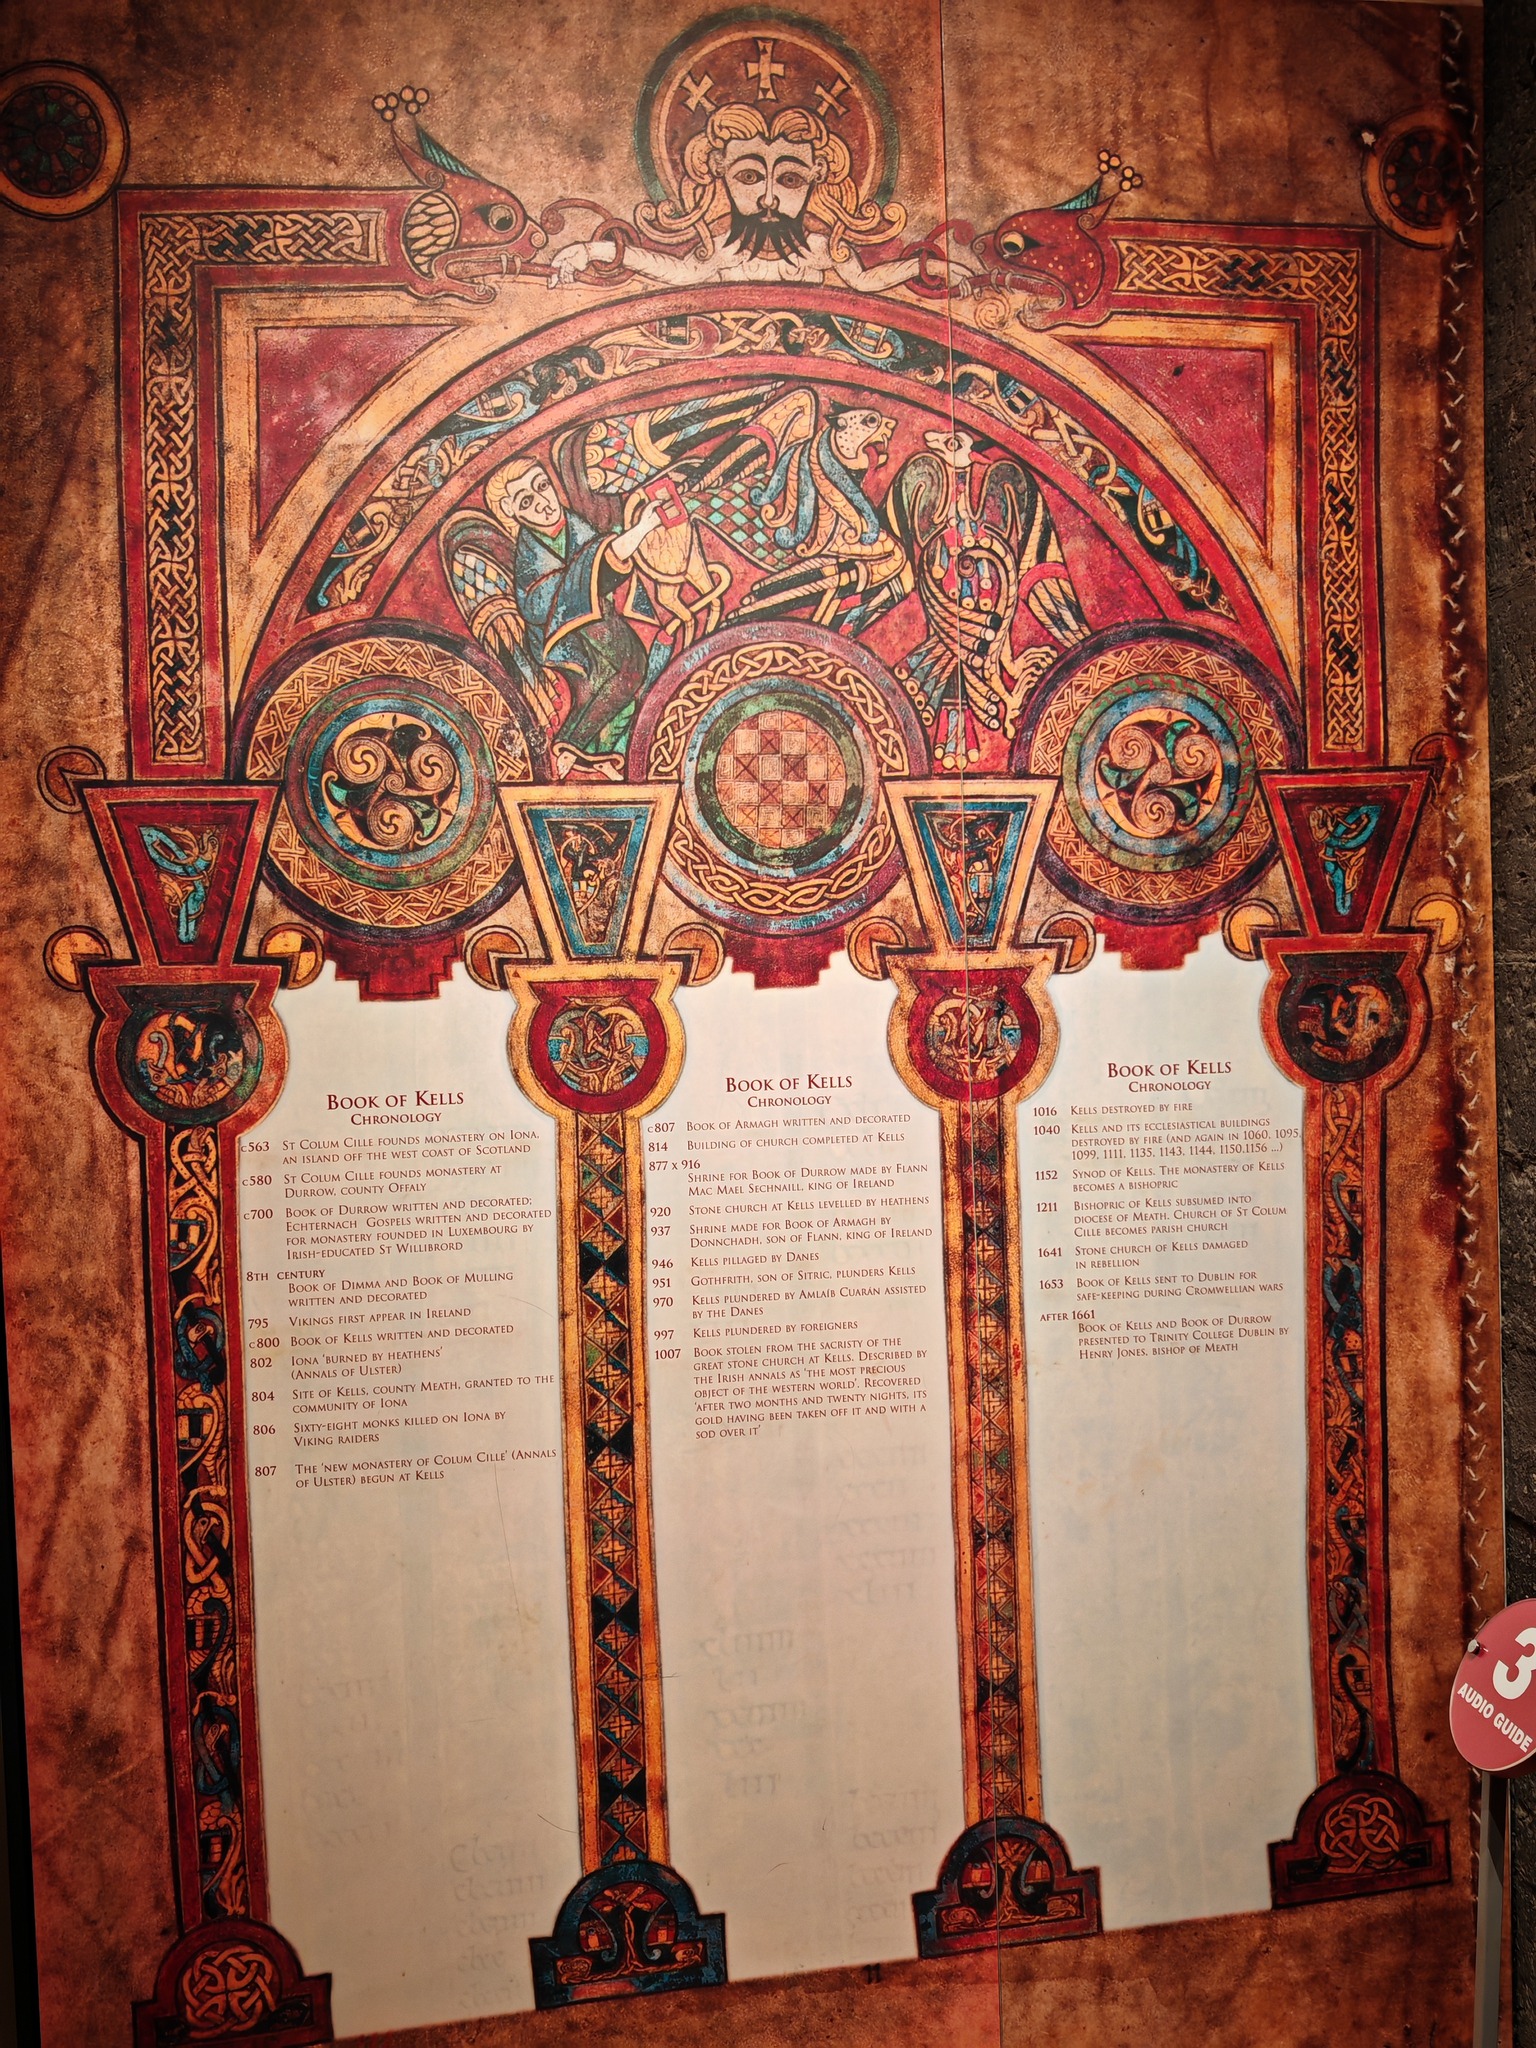 BOOK OF KELLS
CHRONOLOGY
c563 ST COLUM CILLE FOUNDS MONASTERY ON IONA,
AN ISLAND OFF THE WEST COAST OF SCOTLAND
c580 ST COLUM CILLE FOUNDS MONASTERY AT
DURROW, COUNTY OFFALY
c700 BOOK OF DURROW WRITTEN AND DECORATED;
ECHTERNACH GOSPELS WRITTEN AND DECORATED
FOR MONASTERY FOUNDED IN LUXEMBOURG BY
IRISH-EDUCATED ST WILLIBRORD
8TH CENTURY
BOOK OF DIMMA AND BOOK OF MULLING
WRITTEN AND DECORATED
795 VIKINGS FIRST APPEAR IN IRELAND
c800 BOOK OF KELLS WRITTEN AND DECORATED
802 IONA 'BURNED BY HEATHENS'
(ANNALS OF ULSTER)
804 SITE OF KELLS, COUNTY MEATH, GRANTED TO THE
COMMUNITY OF IONA
806 SIXTY-EIGHT MONKS KILLED ON IONA BY
VIKING RAIDERS
807 THE 'NEW MONASTERY OF COLUM CILLE' (ANNALS
OF ULSTER) BEGUN AT KELLS
BOOK OF KELLS
CHRONOLOGY
c807 BOOK OF ARMAGH WRITTEN AND DECORATED
814 BUILDING OF CHURCH COMPLETED AT KELLS
877 x 916
SHRINE FOR BOOK OF DURROW MADE BY FLANN
MAC MAEL SECHNAILL, KING OF IRELAND
920 STONE CHURCH AT KELLS LEVELLED BY HEATHENS
937 SHRINE MADE FOR BOOK OF ARMAGH BY
DONNCHADH, SON OF FLANN, KING OF IRELAND
946 KELLS PILLAGED BY DANES
951 GOTHFRITH, SON OF SITRIC, PLUNDERS KELLS
970 KELLS PLUNDERED BY AMLAÍB CUARÁN ASSISTED
BY THE DANES
997 KELLS PLUNDERED BY FOREIGNERS
1007 BOOK STOLEN FROM THE SACRISTY OF THE
GREAT STONE CHURCH AT KELLS. DESCRIBED BY
THE IRISH ANNALS AS 'THE MOST PRECIOUS
OBJECT OF THE WESTERN WORLD'. RECOVERED
'AFTER TWO MONTHS AND TWENTY NIGHTS, ITS
GOLD HAVING BEEN TAKEN OFF IT AND WITH A
SOD OVER IT'
BOOK OF KELLS
CHRONOLOGY
1016 KELLS DESTROYED BY FIRE
1040 KELLS AND ITS ECCLESIASTICAL BUILDINGS
DESTROYED BY FIRE (AND AGAIN IN 1060, 1095,
1099, 1111, 1135, 1143, 1144, 1150,1156 ...)
1152 SYNOD OF KELLS. THE MONASTERY OF KELLS
BECOMES A BISHOPRIC
1211 BISHOPRIC OF KELLS SUBSUMED INTO
DIOCESE OF MEATH. CHURCH OF ST COLUM
CILLE BECOMES PARISH CHURCH
1641 STONE CHURCH OF KELLS DAMAGED
IN REBELLION
1653 BOOK OF KELLS SENT TO DUBLIN FOR
SAFE-KEEPING DURING CROMWELLIAN WARS
AFTER 1661
BOOK OF KELLS AND BOOK OF DURROW
PRESENTED TO TRINITY COLLEGE DUBLIN BY
HENRY JONES, BISHOP OF MEATH
3
AUDIO GUIDE